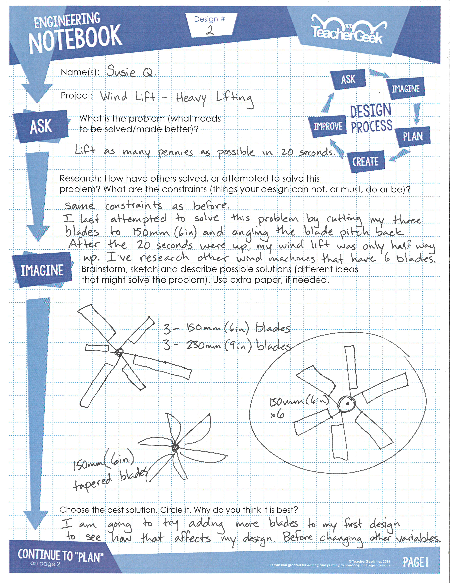 ENGINEERING
NOTEBOOK
Design #
2
TeacherGeek
Name(s): Susie Q.
Project: Wind Lift - Heavy Lifting
ASK
IMAGINE
PLAN
CREATE
IMPROVE
DESIGN
PROCESS
ASK
What is the problem (what needs
to be solved/made better)?
Lift as many pennies as possible in 20 seconds.
Research: How have others solved, or attempted to solve this
problem? What are the constraints (things your design can not, or must, do or be)?
Same constraints as before.
I last attempted to solve this problem by cutting my three
blades to 150mm (6in) and angling the blade pitch back.
After the 20 seconds were up, my wind lift was only half way
up. I've research other wind machines that have 6 blades.
IMAGINE
Brainstorm, sketch and describe possible solutions (different ideas
that might solve the problem). Use extra paper, if needed.
3 - 150mm (6in) blades
3 - 230mm (9in) blades
150mm (6in)
x6
150mm (6in)
tapered blades
Choose the best solution. Circle it. Why do you think it is best?
I am going to try adding more blades to my first design
to see how that affects my design. Before changing other variables.
CONTINUE TO "PLAN"
on page 2
PAGE 1